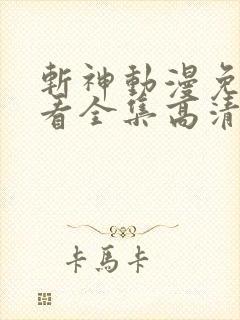 斬神動漫免
看全集高清
卡馬卡